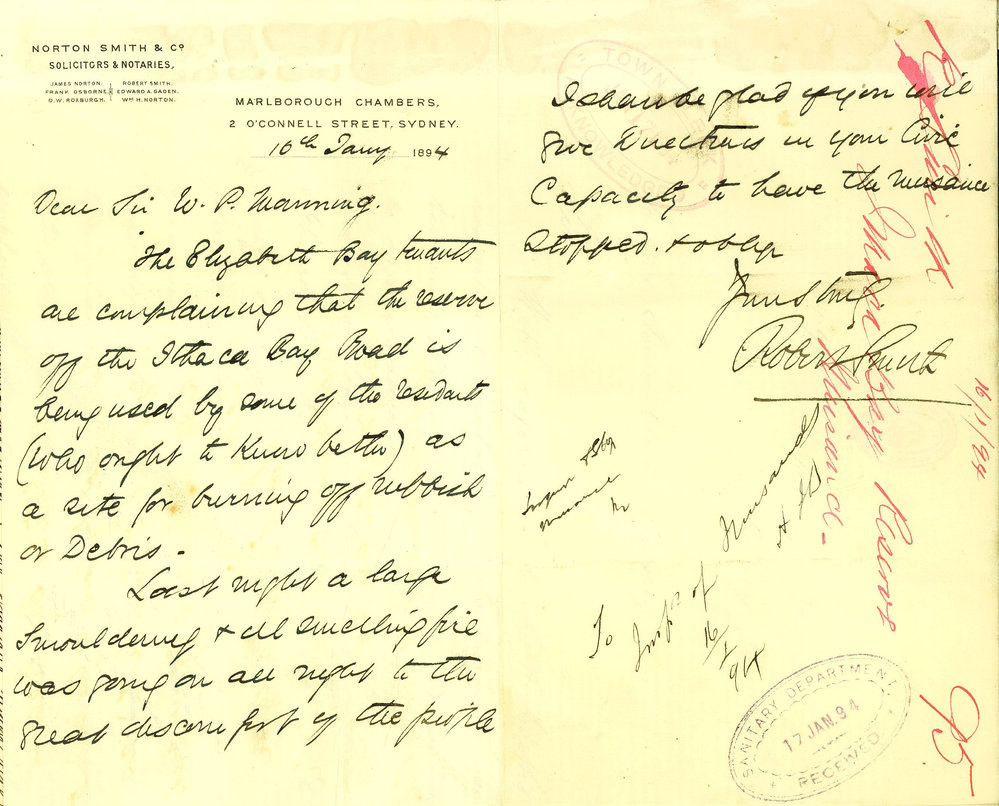 NORTON SMITH & Co
SOLICITORS & NOTARIES,
JAMES NORTON. ROBERT SMITH.
FRANK OSBORNE. EDWARD A. GADEN.
O.W. ROXBURGH. WM H. NORTON.
MARLBOROUGH CHAMBERS,
2 O'CONNELL STREET, SYDNEY.
16th Jany 1894
Dear Sir W. P. Manning.
The Elizabeth Bay tenants
are complaining that the reserve
off the Ithaca Bay Road is
being used by some of the residents
(who ought to know better) as
a site for burning off rubbish
or Debris -
Last night a large
Smouldering & ill smelling fire
was going on all night to the
great discomfort of the people
I shall be glad if you will
give Directions in your Civic
Capacity to have the nuisance
stopped. & oblige
Yours truly
Robert Smith
Nuisance
To
Inspr of
16/1/94
TOWN CLERK
SANITARY DEPARTMENT
17 JAN. 94
RECEIVED
R. Smith
Bay Reserve
Nuisance -
16/1/94
95